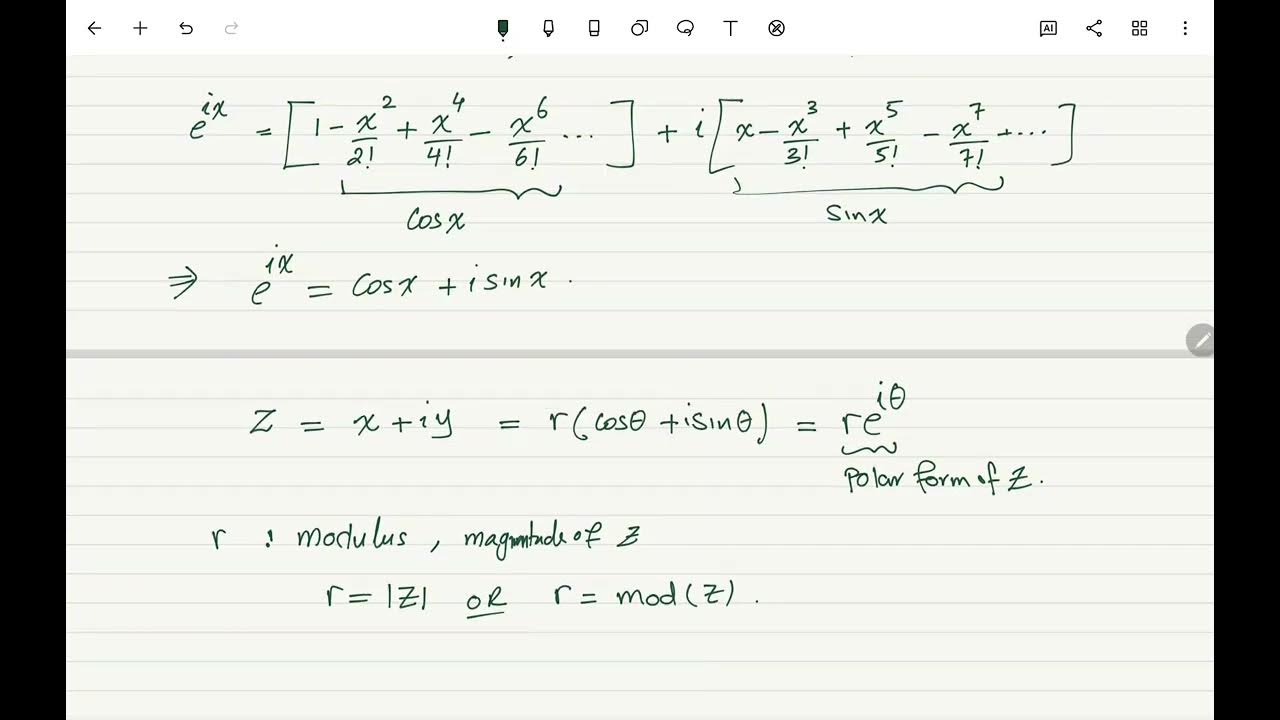 T
AI
e^{ix} = [1 - x^2/2! + x^4/4! - x^6/6! ...] + i[x - x^3/3! + x^5/5! - x^7/7! + ...]
Cosx
Sinx
⇒ e^{ix} = Cosx + i sinx .
Z = x + iy = r(cosθ + isinθ) = re^{iθ}
Polar form of Z.
r : modulus, magnitude of Z
r = |Z| OR r = mod(Z) .